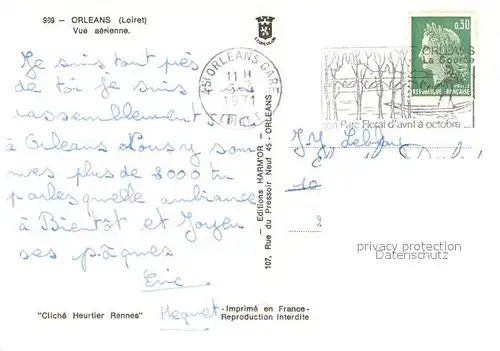 969 - ORLEANS (Loiret)
Vue aérienne.
Je suis tout près
de toi je suis
rassemblement s
à Orleans Nous y som
mes plus de 8000 tu
parles quelle ambiance
à Bientôt et Joyeu
ses pâques
Eric
Hequet
"Cliché Heurtier Rennes"
107, Rue du Pressoir Neuf 45 - ORLEANS
- Editions HARM'OR -
- Imprimé en France -
Reproduction Interdite
45 ORLEANS GARE
11 H
1971
ORLEANS
La Source
son Parc Floral d'avril à octobre
0,30
REPUBLIQUE FRANÇAISE
J Y Leblanc
10
privacy protection
Datenschutz